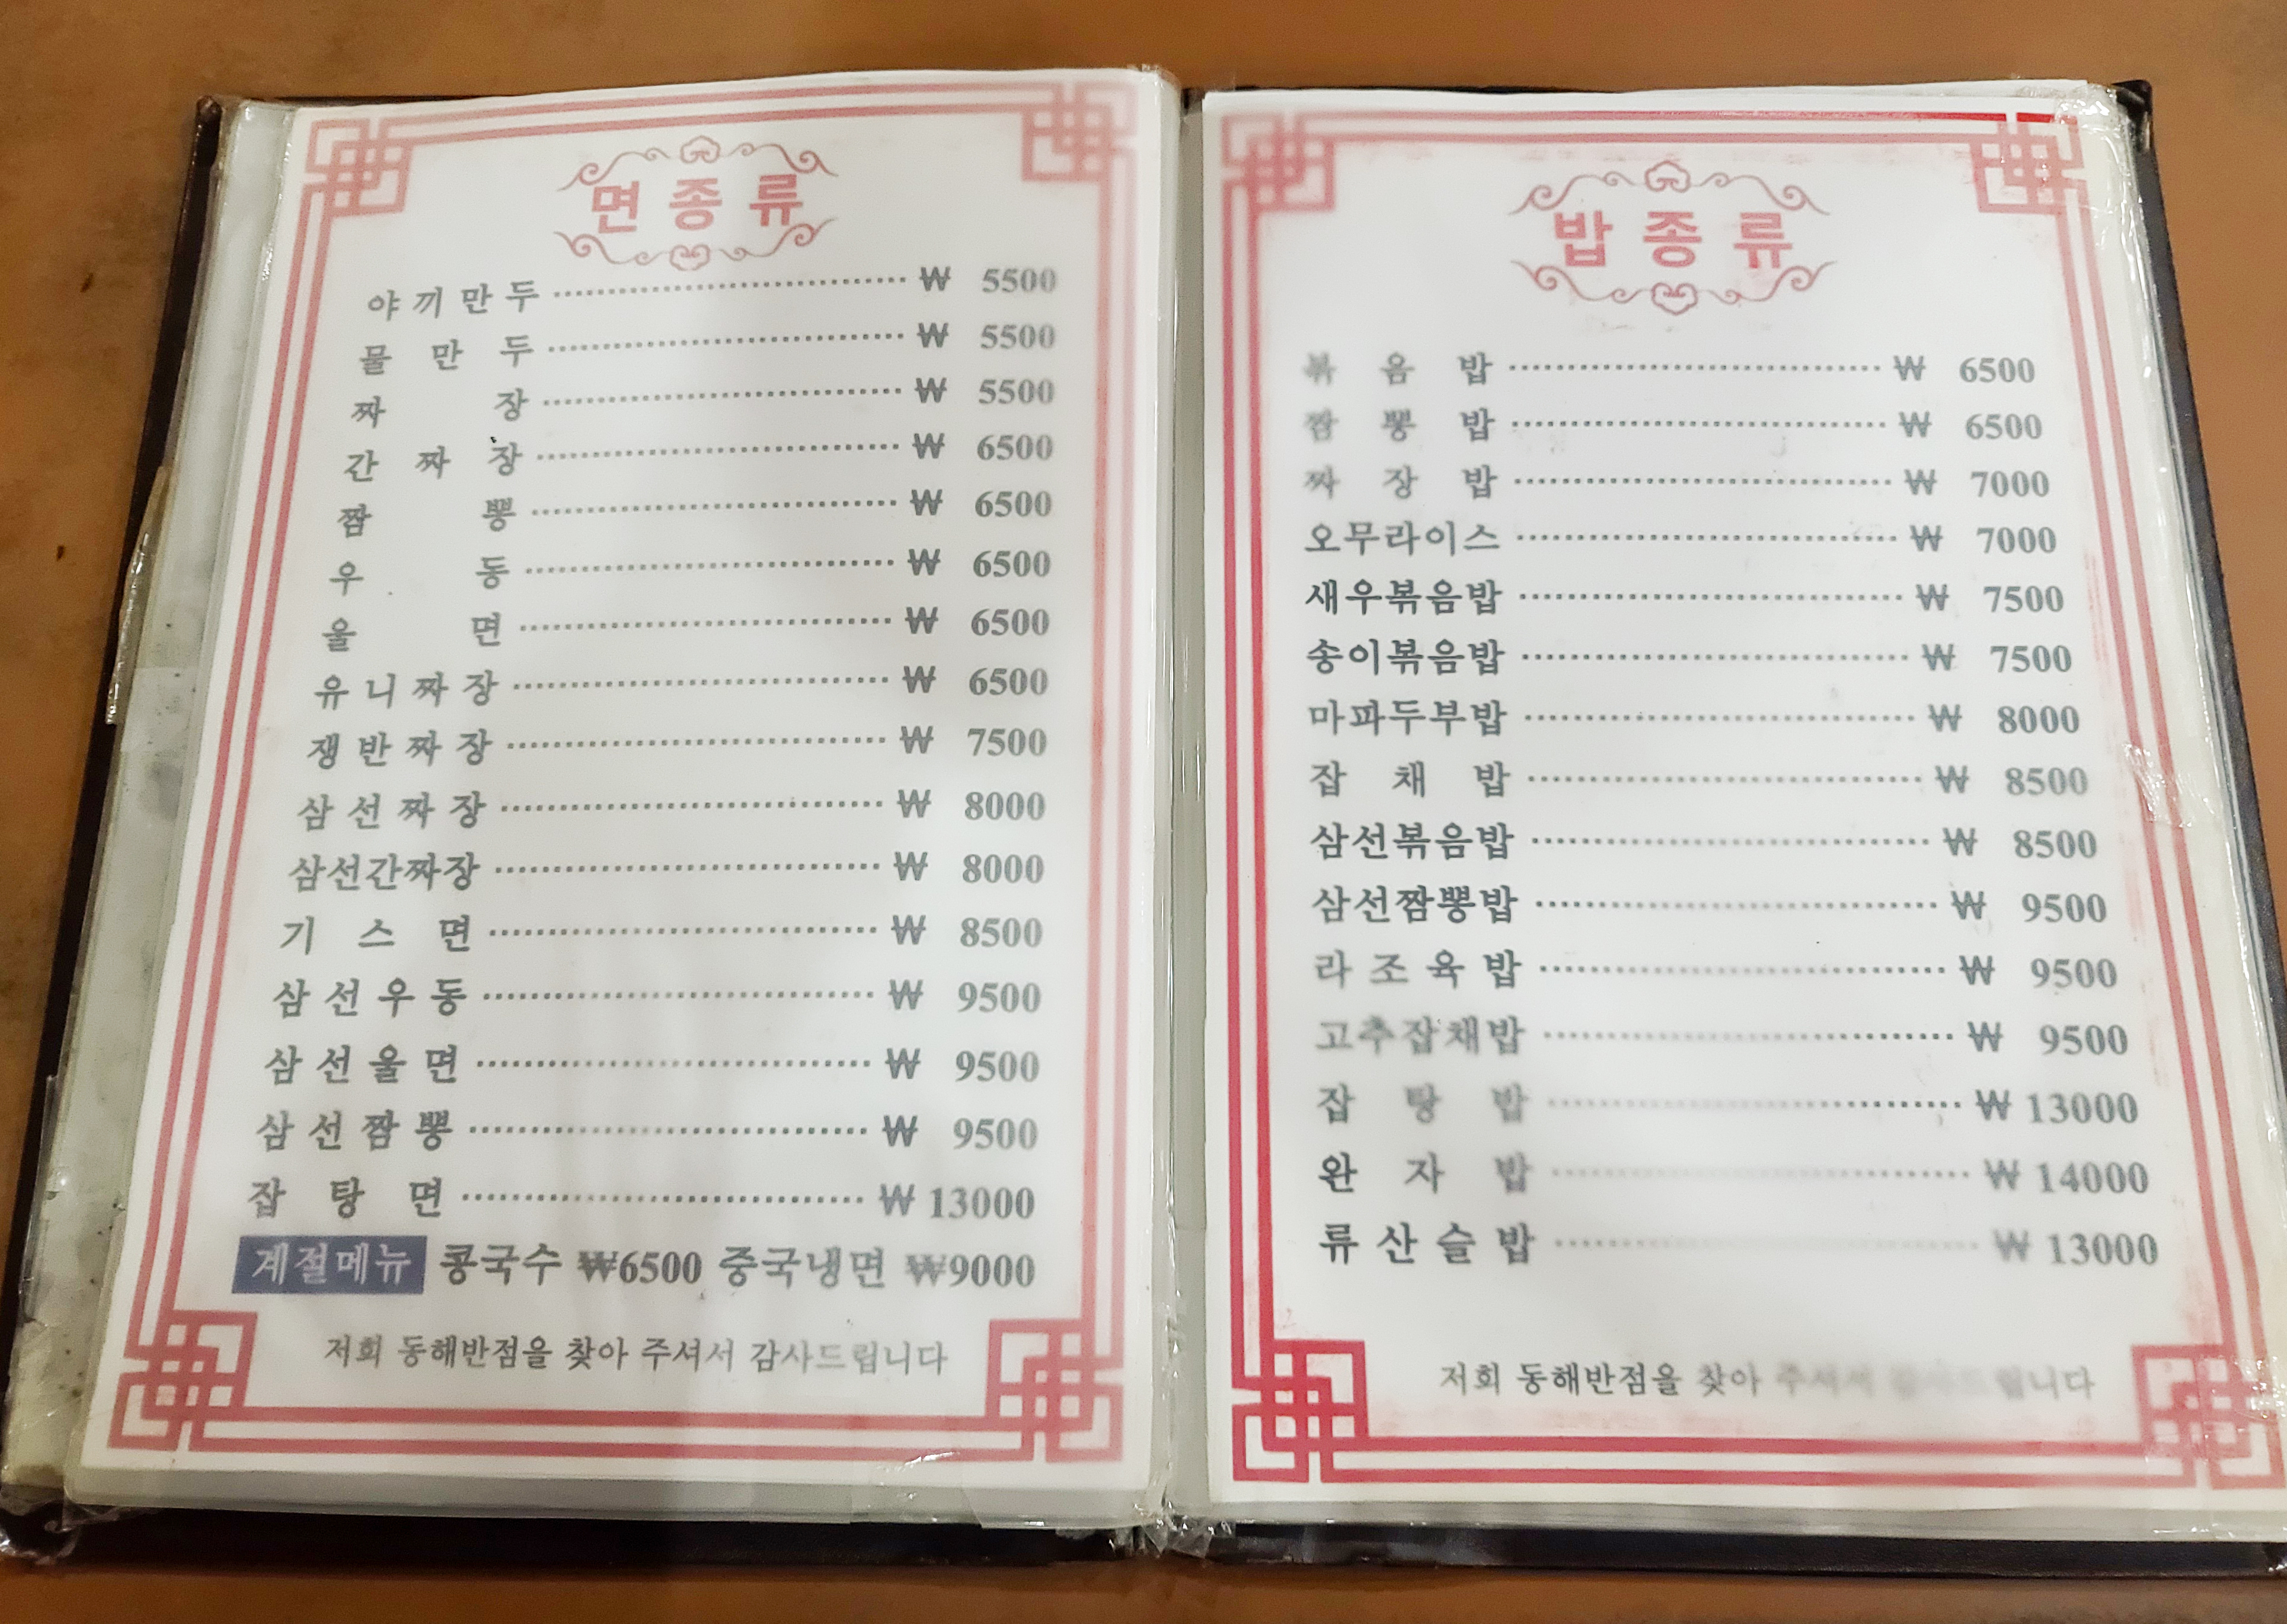 면종류
야끼만두 ₩ 5500
물만두 ₩ 5500
짜장 ₩ 5500
간짜장 ₩ 6500
짬뽕 ₩ 6500
우동 ₩ 6500
울면 ₩ 6500
유니짜장 ₩ 6500
쟁반짜장 ₩ 7500
삼선짜장 ₩ 8000
삼선간짜장 ₩ 8000
기스면 ₩ 8500
삼선우동 ₩ 9500
삼선울면 ₩ 9500
삼선짬뽕 ₩ 9500
잡탕면 ₩ 13000
계절메뉴 콩국수 ₩6500 중국냉면 ₩9000
저희 동해반점을 찾아 주셔서 감사드립니다
밥종류
볶음밥 ₩ 6500
짬뽕밥 ₩ 6500
짜장밥 ₩ 7000
오무라이스 ₩ 7000
새우볶음밥 ₩ 7500
송이볶음밥 ₩ 7500
마파두부밥 ₩ 8000
잡채밥 ₩ 8500
삼선볶음밥 ₩ 8500
삼선짬뽕밥 ₩ 9500
라조육밥 ₩ 9500
고추잡채밥 ₩ 9500
잡탕밥 ₩ 13000
완자밥 ₩ 14000
류산슬밥 ₩ 13000
저희 동해반점을 찾아 주셔서 감사드립니다